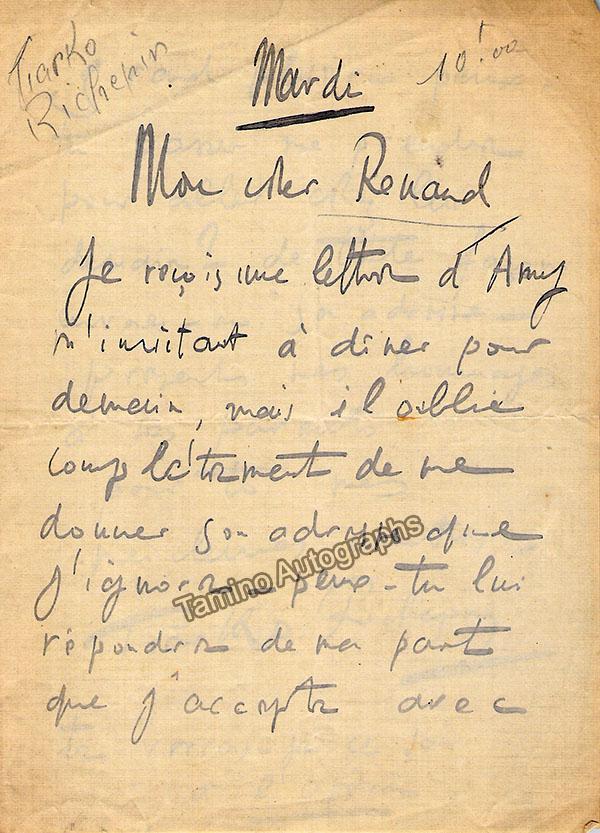 Tiarko
Richepin
Mardi
10!00
Mon cher Renaud
Je reçois une lettre d'Amy
m'invitant à dîner pour
demain, mais il oublie
complètement de me
donner son adresse que
j'ignore peux-tu lui
répondre de ma part
que j'accepte avec
Tamino Autographs